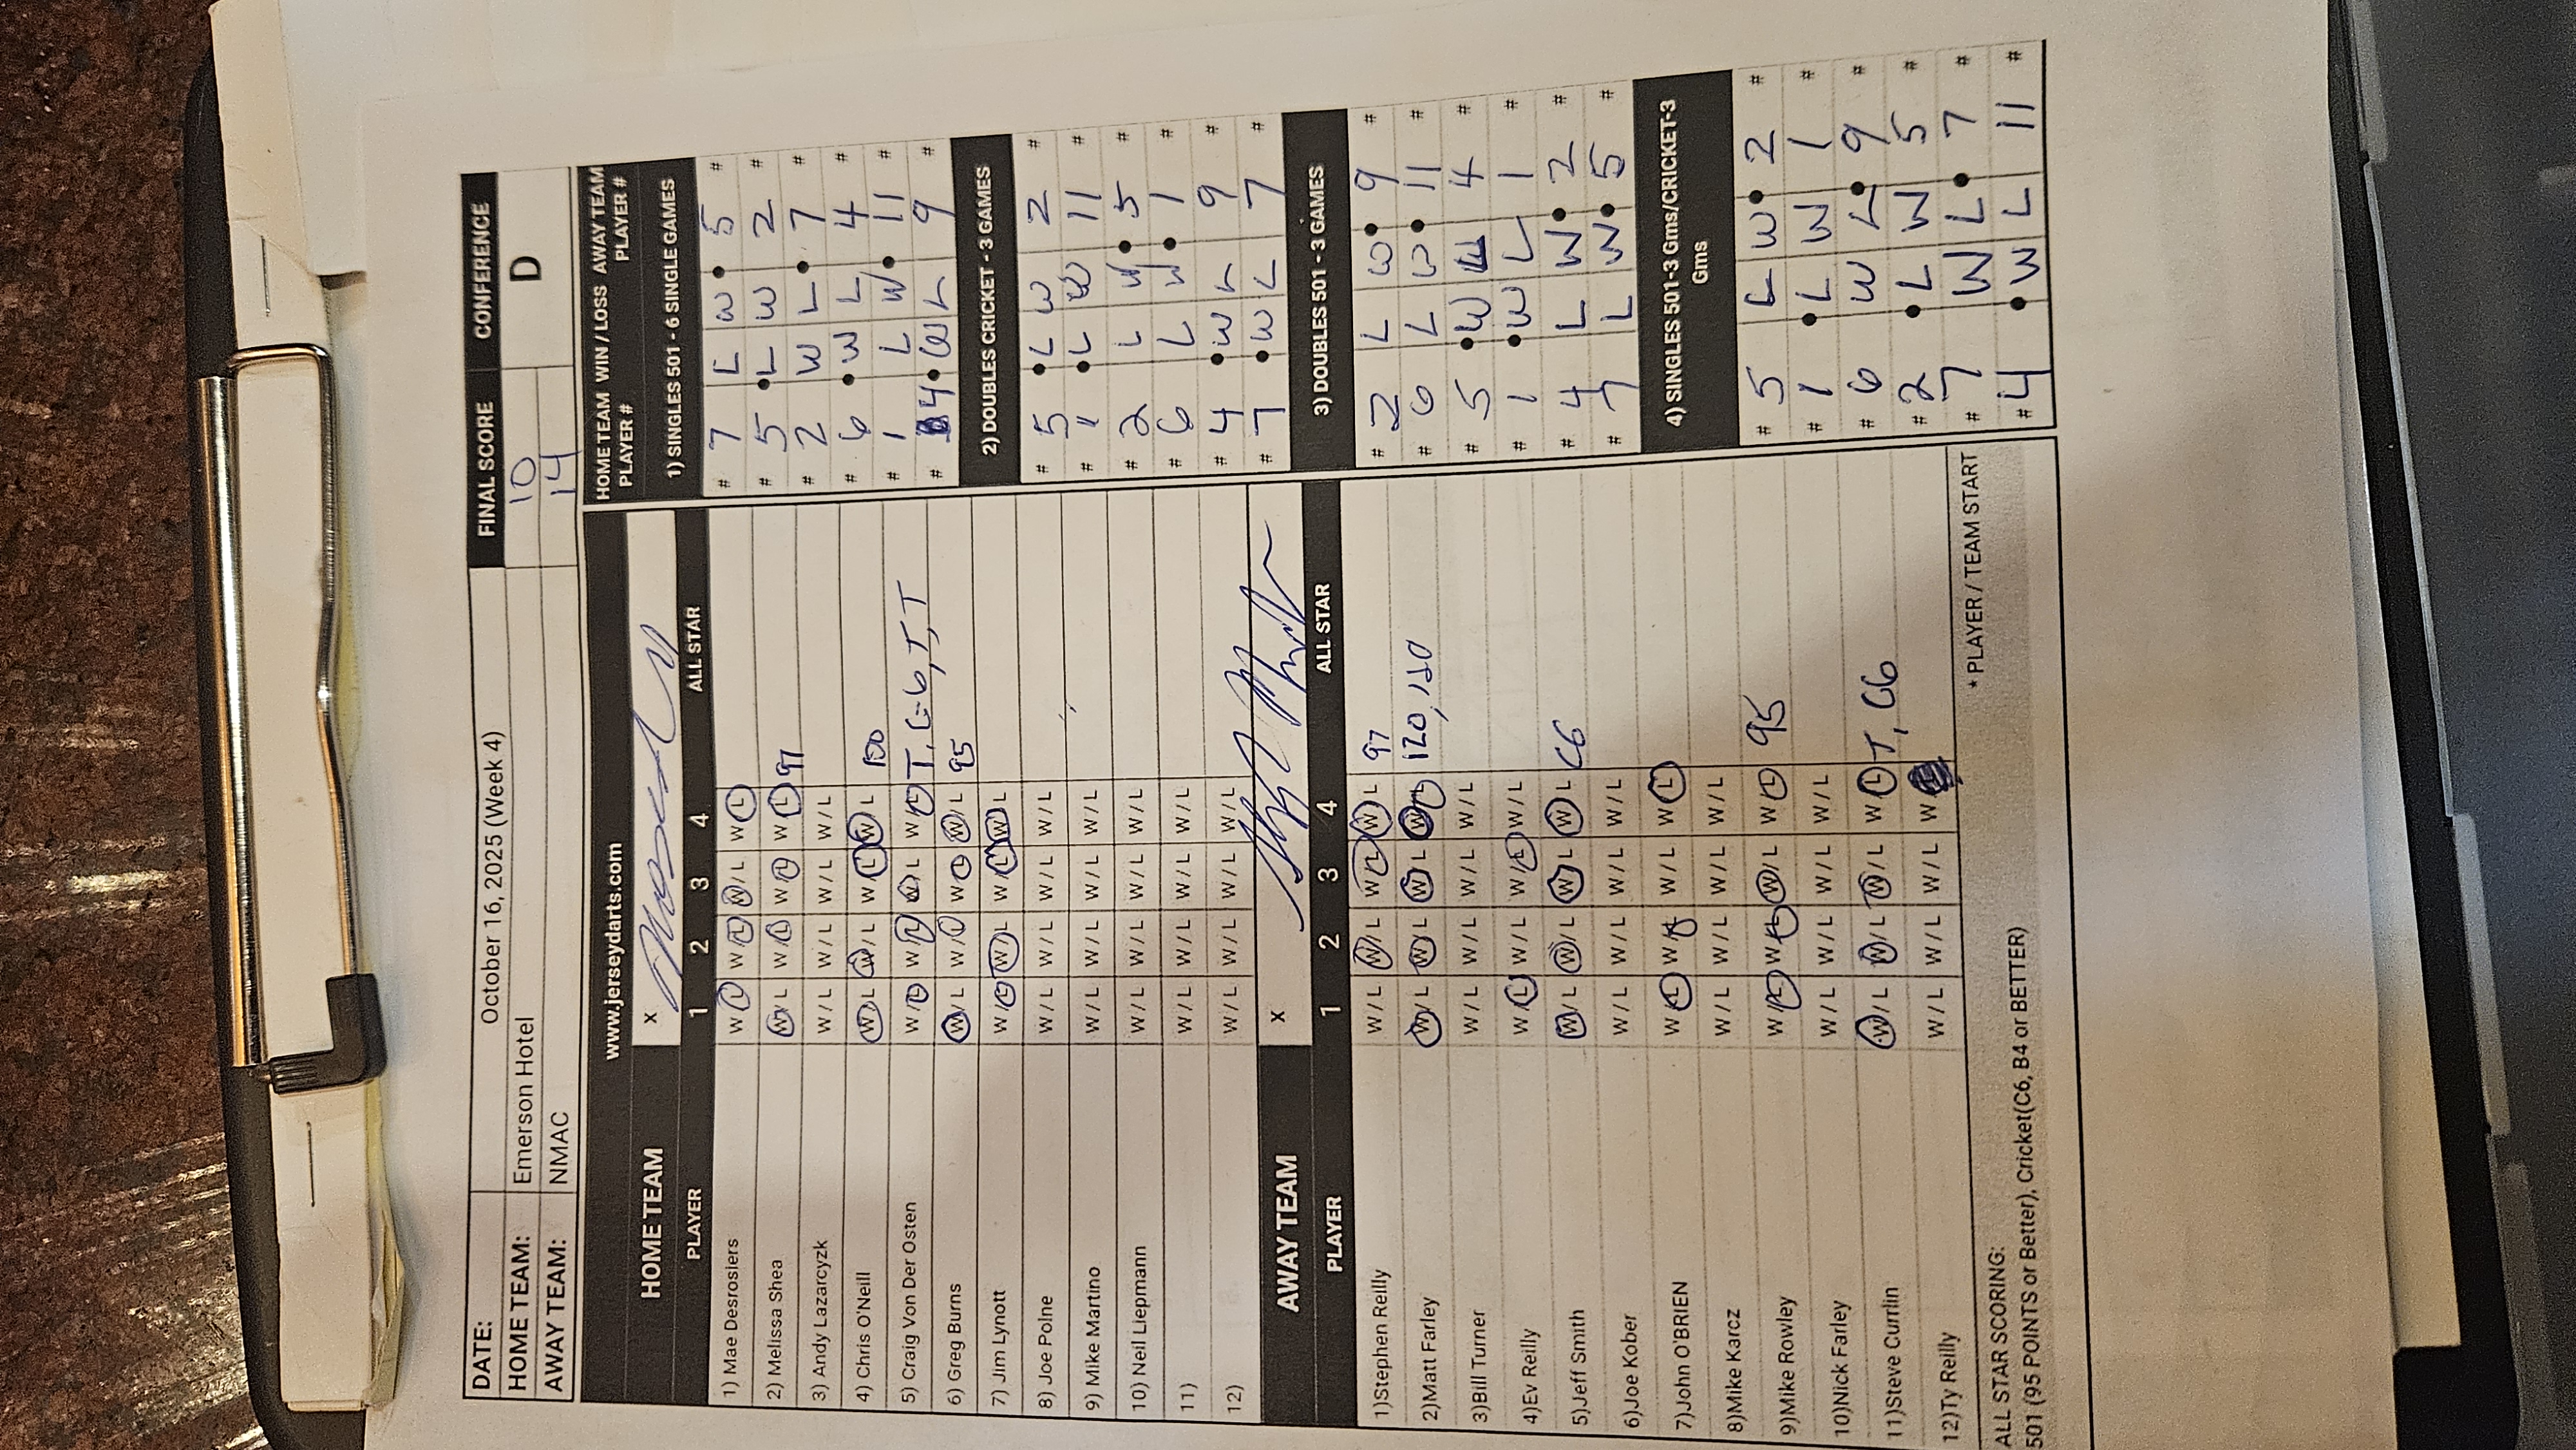 DATE: October 16, 2025 (Week 4) FINAL SCORE CONFERENCE
HOME TEAM: Emerson Hotel 10 D
AWAY TEAM: NMAC 14
www.jerseydarts.com
HOME TEAM X
PLAYER 1 2 3 4 ALL STAR
1) Mae Desrosiers W/L W/L W/L W/L
2) Melissa Shea W/L W/L W/L W/L 97
3) Andy Lazarcyzk W/L W/L W/L W/L
4) Chris O'Neill W/L W/L W/L W/L 100
5) Craig Von Der Osten W/L W/L W/L W/L T, C-6, T, T
6) Greg Burns W/L W/L W/L W/L 95
7) Jim Lynott W/L W/L W/L W/L
8) Joe Polne W/L W/L W/L W/L
9) Mike Martino W/L W/L W/L W/L
10) Neil Liepmann W/L W/L W/L W/L
11) W/L W/L W/L W/L
12) W/L W/L W/L W/L
AWAY TEAM X
PLAYER 1 2 3 4 ALL STAR
1)Stephen Reilly W/L W/L W/L W/L 97
2)Matt Farley W/L W/L W/L W/L 120, 120
3)Bill Turner W/L W/L W/L W/L
4)Ev Reilly W/L W/L W/L W/L
5)Jeff Smith W/L W/L W/L W/L C6
6)Joe Kober W/L W/L W/L W/L
7)John O'BRIEN W/L W/L W/L W/L
8)Mike Karcz W/L W/L W/L W/L
9)Mike Rowley W/L W/L W/L W/L 95
10)Nick Farley W/L W/L W/L W/L
11)Steve Currlin W/L W/L W/L W/L T, C6
12)Ty Reilly W/L W/L W/L W
ALL STAR SCORING: * PLAYER / TEAM START
501 (95 POINTS or Better), Cricket(C6, B4 or BETTER)
HOME TEAM WIN / LOSS AWAY TEAM
PLAYER # PLAYER #
1) SINGLES 501 - 6 SINGLE GAMES
# 7 L W • 5 #
# 5 • L W 2 #
# 2 W L • 7 #
# 6 • W L 4 #
# 1 L W • 11 #
# 4 • W L 9 #
2) DOUBLES CRICKET - 3 GAMES
# 5 • L W 2 #
# 1 • L W 11 #
# 2 L W • 5 #
# 6 L W • 1 #
# 4 • W L 9 #
# 7 • W L 7 #
3) DOUBLES 501 - 3 GAMES
# 2 L W • 9 #
# 6 L W • 11 #
# 5 • W L 4 #
# 1 • W L 1 #
# 4 L W • 2 #
# 7 L W • 5 #
4) SINGLES 501-3 Gms/CRICKET-3
Gms
# 5 L W • 2 #
# 1 • L W 1 #
# 6 W L • 9 #
# 2 • L W 5 #
# 7 W L • 7 #
# 4 • W L 11 #